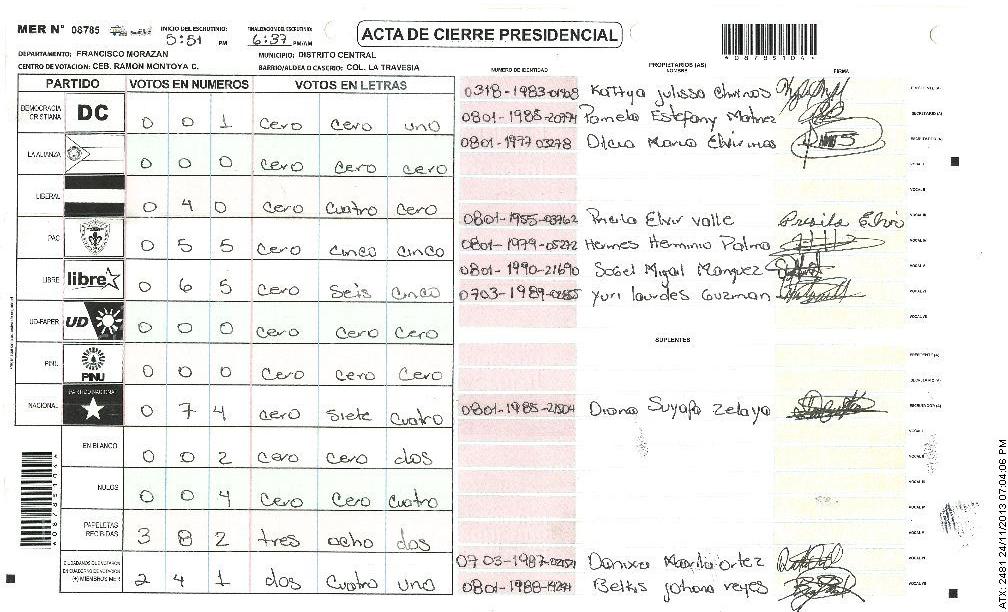 MER N° 08785
INICIO DEL ESCRUTINIO: 5:51 PM
FINALIZACION DEL ESCRUTINIO: 6:37 PM/AM
ACTA DE CIERRE PRESIDENCIAL
*08785104*
DEPARTAMENTO: FRANCISCO MORAZAN
MUNICIPIO: DISTRITO CENTRAL
CENTRO DE VOTACION: CEB. RAMON MONTOYA C.
BARRIO/ALDEA O CASERIO: COL. LA TRAVESIA
PARTIDO VOTOS EN NUMEROS VOTOS EN LETRAS
DEMOCRACIA CRISTIANA DC 0 0 1 cero cero uno
LA ALIANZA 0 0 0 cero cero cero
LIBERAL 0 4 0 cero cuatro cero
PAC 0 5 5 cero cinco cinco
LIBRE libre 0 6 5 cero seis cinco
UD-FAPER UD 0 0 0 cero cero cero
PINU PINU 0 0 0 cero cero cero
NACIONAL PARTIDO NACIONAL 0 7 4 cero siete cuatro
EN BLANCO 0 0 2 cero cero dos
NULOS 0 0 4 cero cero cuatro
PAPELETAS RECIBIDAS 3 8 2 tres ocho dos
CIUDADANOS QUE VOTARON EN CUADERNO DE VOTACION (+) MIEMBROS MER 2 4 1 dos cuatro uno
NUMERO DE IDENTIDAD
PROPIETARIOS (AS)
NOMBRE
FIRMA
0318-1983- Kattya julissa chirinos
0801-1985- Pamela Estefany
SECRETARIO(A)
0801-1977 03278 Diana Maria
0801-1955- Elvir valle
0801-1979-05272 Hermes Herminio Palma
0801-1990-21690 Migail Marquez
0703-1989- Yuri lourdes Guzman
SUPLENTES
0801-1985- Diana Suyapa Zelaya
0703-1987-
0801-1988- Belkis johana reyes
ATX-2381 24/11/2013 07:04:06 PM